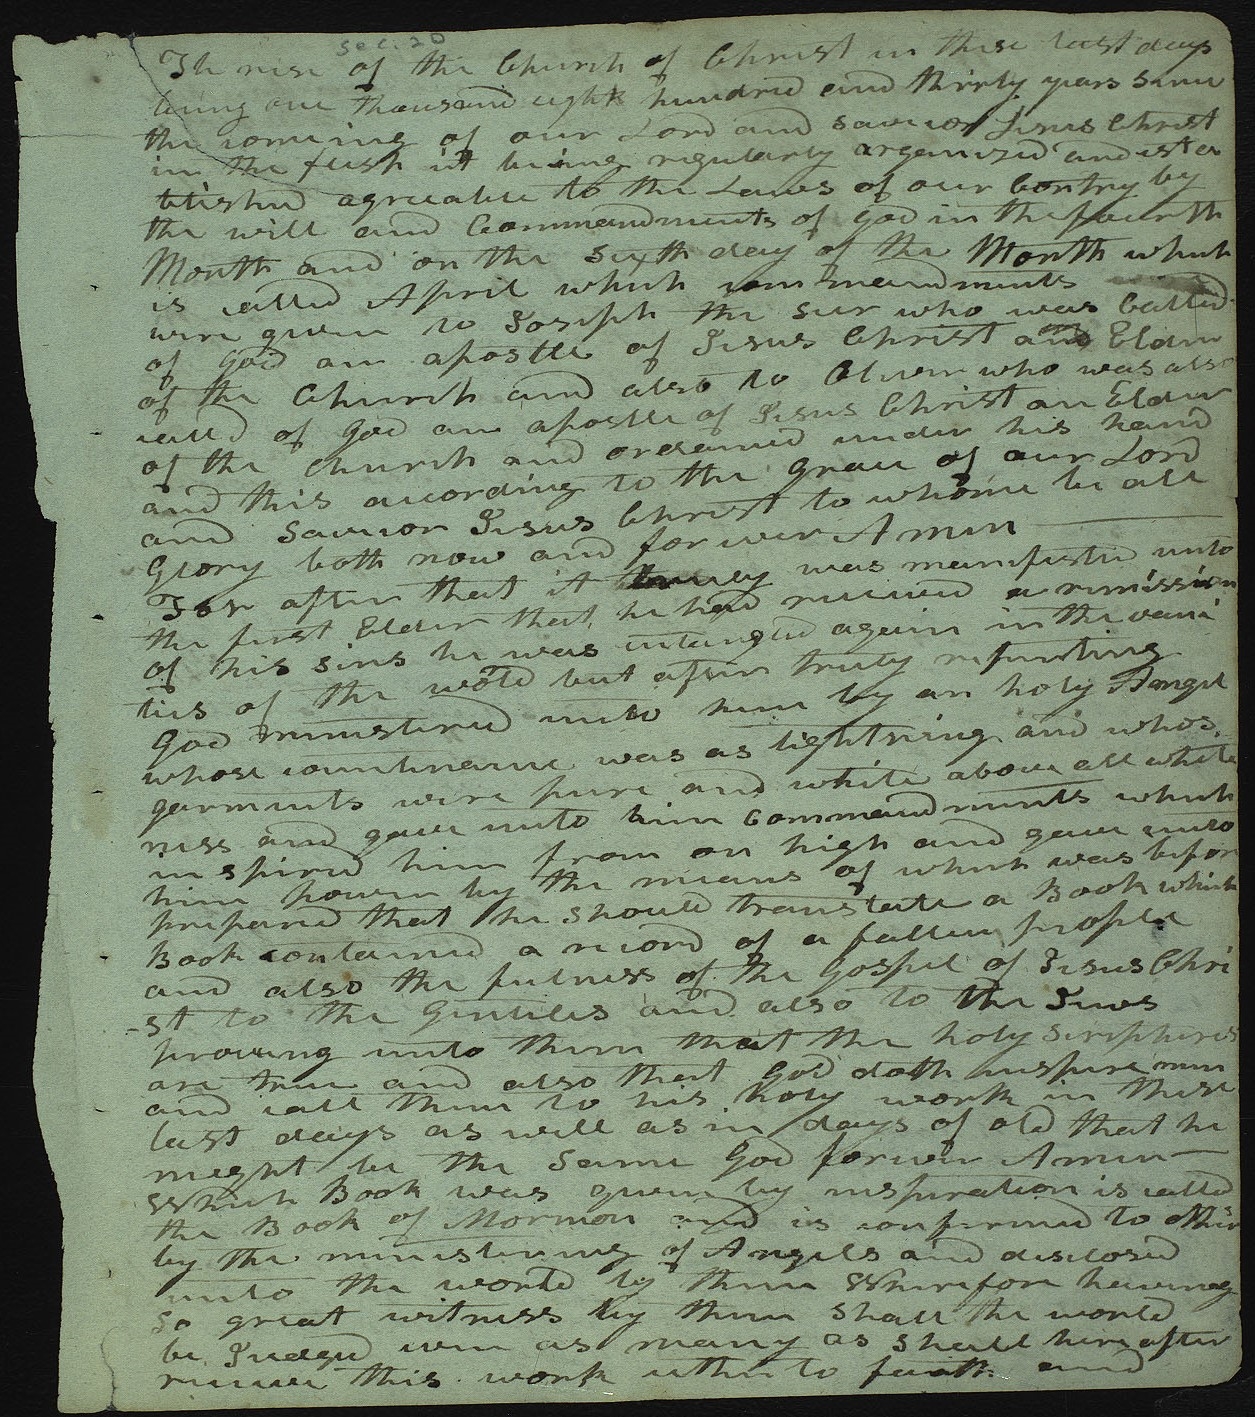 Sec. 20
The rise of the Church of Christ in these last days
being one thousand eight hundred and thirty years since
the comeing of our Lord and savior Jesus Christ
in the flesh it being regularly organized and esta
blished agreeable to the Laws of our Contry by
the will and Commandments of God in the fourth
Month and on the sixth day of the Month which
is called April which commandments
were given to Joseph the seer who was Called
of God an apostle of Jesus Christ an Elder
of the Church and also to Oliver who was also
called of God an apostle of Jesus Christ an Elder
of the Church and ordained under his hand
and this according to the Grace of our Lord
and Savior Jesus Christ to whome be all
Glory both now and forever Amen
For after that it truly was manifested unto
the first Elder that he had received a remission
of his sins he was intangled again in the vani
ties of the world but after truly repenting
God ministered unto him by an holy Angel
whose countenance was as lightning and whos
garments were pure and white above all white
ness and gave unto him Commandments which
inspired him from on high and gave unto
him power by the means of which was before
prepared that he should translate a Book which
Book contained a record of a fallen people
and also the fulness of the Gospel of Jesus Chri
-st to the Gentiles and also to the Jews
proveing unto them that the holy scriptures
are true and also that God doth inspire men
and call them to his holy work in these
last days as well as in days of old that he
might be the same God forever Amen
Which Book was given by inspiration is called
the Book of Mormon and is confirmed to others
by the ministering of Angels and disclosed
unto the world by them Wherefore haveing
so great witness by them shall the world
be Judged even as many as shall hereafter
receive this work either to faith and